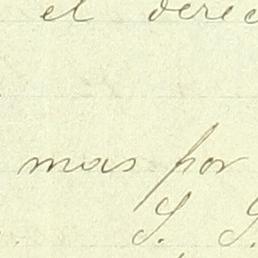 el derec
mas por
S. S.